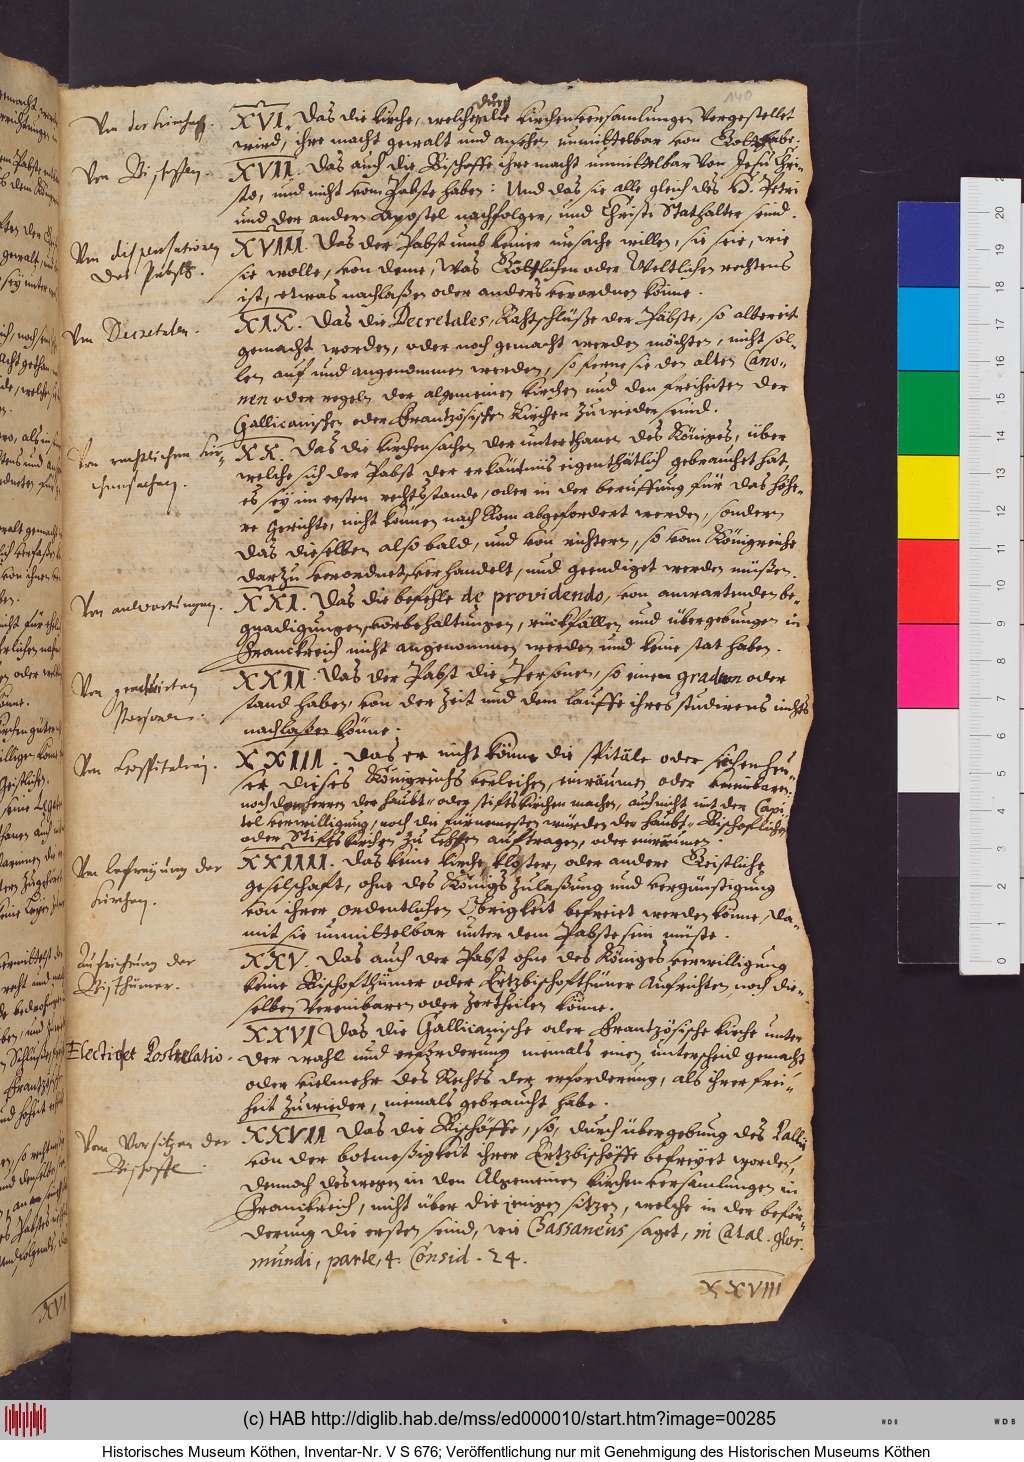 140
Von der kirchen.
XVI. Das die kirche, welche durch die kirchenversamlungen vorgestellet
wird, ihre macht gewalt und ansehen unmittelbar von Gott habe.
Von Bischoffen.
XVII. Das auch die Bischoffe ihre macht unmittelbar von Jesu Chri-
sto, und nicht vom Pabste haben: Und das sie alle gleich des H. Petri
und der andern Apostel nachfolger, und Christi Stathalter seind.
Von dispensationen
des Pabsts.
XVIII. Das der Pabst umb keiner ursache willen, sie seie, wie
sie wolle, von deme, was Göttlichen oder Weltlichen rechtens
ist, etwas nachlaßen oder anders verordnen könne.
Von Decretalen.
XIX. Das die Decretales, Rahtschlüße der Päbste, so albereit
gemacht worden, oder noch gemacht werden möchten, nicht sol-
len auf und angenommen werden, so ferne sie den alten Cano-
nen oder regeln der algemeinen kirchen und den freiheiten der
Gallicanischen oder Frantzösischen kirchen zu wieder seind.
Von rechtlichen kir-
chensachen.
XX. Das die kirchensachen der unterthanen des Königes, über
welche sich der Pabst der erkäntnis eigenthätlich gebrauchet hat,
es sey im ersten rechtsstande, oder in der beruffung für das höhe-
re Gerichte, nicht können nach Rom abgefordert werden, sondern
das dieselben also bald, und von richtern, so vom Königreiche
darzu verordnet, verhandelt, und geendiget werden müßen.
Von anwartungen.
XXI. Das die befehle de providendo, von anwartenden be-
gnadigungen, vorbehaltungen, rückfällen und übergebungen in
Franckreich nicht angenommen werden und keine stat haben.
Von graduirten
Personen.
XXII. Das der Pabst die Personen, so einen gradum oder
stand haben, von der zeit und dem lauffe ihres studirens nichts
nachlaßen könne.
Von Hospitalien.
XXIII. Das er nicht könne die spitäle oder siechenheu-
ser dieses Königreichs verleihen, einräumen oder vereinbaren:
noch domherren der haubt- oder stifts kirchen machen, auch nicht mit der Capi-
tel verwilligung, noch die fürnemesten würden der haubt- Bischoflichen
oder Stiftskirchen zu Lehen auftragen, oder einräumen.
Von befreyung der
kirchen.
XXIIII. Das keine kirche, kloster, oder andere Geistliche
geselschaft, ohne des Königs zulaßung und vergünstigung
von ihrer ordentlichen Obrigkeit befreiet werden könne, da-
mit sie unmittelbar unter dem Pabste sein müste.
Aufrichtung der
Bisthümer.
XXV. Das auch der Pabst ohne des Königes verwilligung
keine Bischofthümer oder Ertzbischofthümer aufrichten noch die-
selben vereinbaren oder zertheilen könne.
Electio et Postulatio.
XXVI Das die Gallicanische oder Frantzösische kirche unter
der wahl und erforderung niemals einen unterscheid gemacht
oder vielmehr des Rechts der erforderung, als ihrer frei-
heit zuwieder, niemals gebraucht habe.
Vom Vorsitzen der
Bischoffe.
XXVII Das die Bischöffe, so, durch übergebung des Pallii
von der botmeßigkeit ihrer Ertzbischöffe befreyet worden,
dennoch deswegen in den Algemeinen kirchenversamlungen in
Franckreich, nicht über die jenigen sitzen, welche in der beför-
derung die ersten seind, wie Cassaneus saget, in Catal. glor.
mundi, parte, 4. Consid. 24.
XXVIII
XVI
(c) HAB http://diglib.hab.de/mss/ed000010/start.htm?image=00285
Historisches Museum Köthen, Inventar-Nr. V S 676; Veröffentlichung nur mit Genehmigung des Historischen Museums Köthen